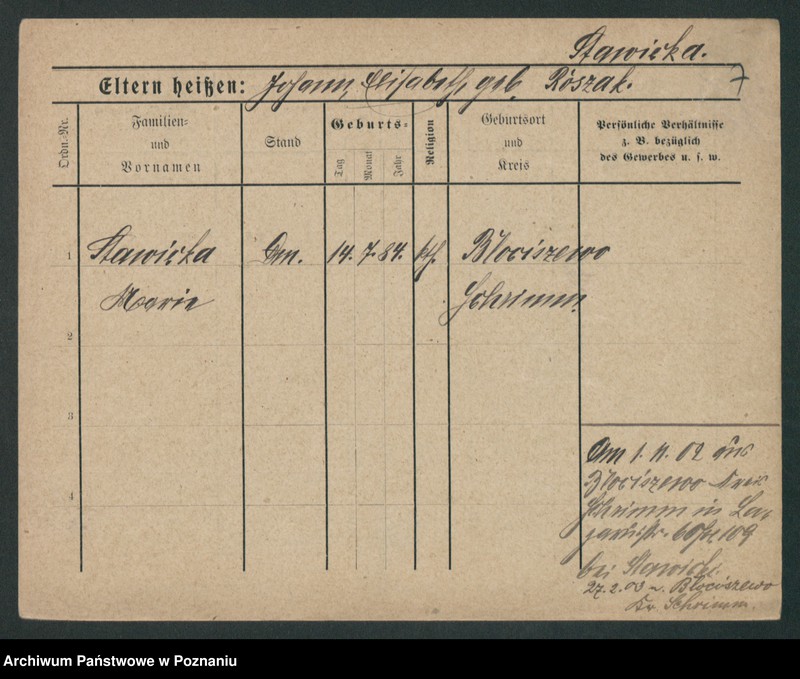 Stawicka.
Eltern heißen: Johann, Elisabeth, geb. Rószak. 7
Ordn.-Nr.
Familien-
und
Vornamen
Stand
Geburts-
Tag
Monat
Jahr
Religion
Geburtsort
und
Kreis
Persönliche Verhältnisse
z. B. bezüglich
des Gewerbes u. s. w.
1 Stawicka 14. 7. 84. kth. Blociszewo
Marie Schrimm
2
3
4
Am 1. 11. 02 aus
Blociszewo Kreis
Schrimm in La-
zarusstr. 109
bei Stawicki.
27. 2. 03 n. Blociszewo
Kr. Schrimm.
Archiwum Państwowe w Poznaniu